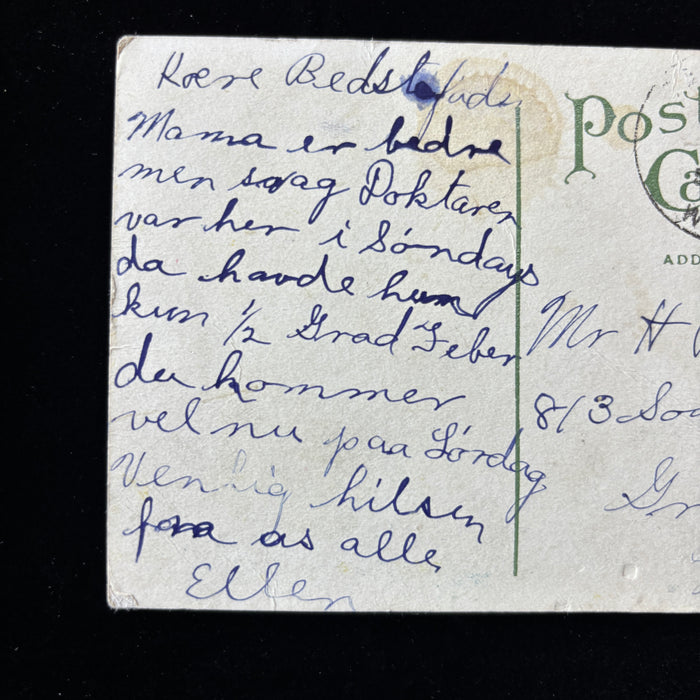 Kære Bedste
Mama er bedre
men svag Doktaren
var her i Söndays
da havde hun
kun 1/2 Grad Feber
du kommer
vel nu paa Lørdag
Venlig hilsen
fra os alle
Ellen
Post
Ca
ADD
Mr H
813 Sou
Gr